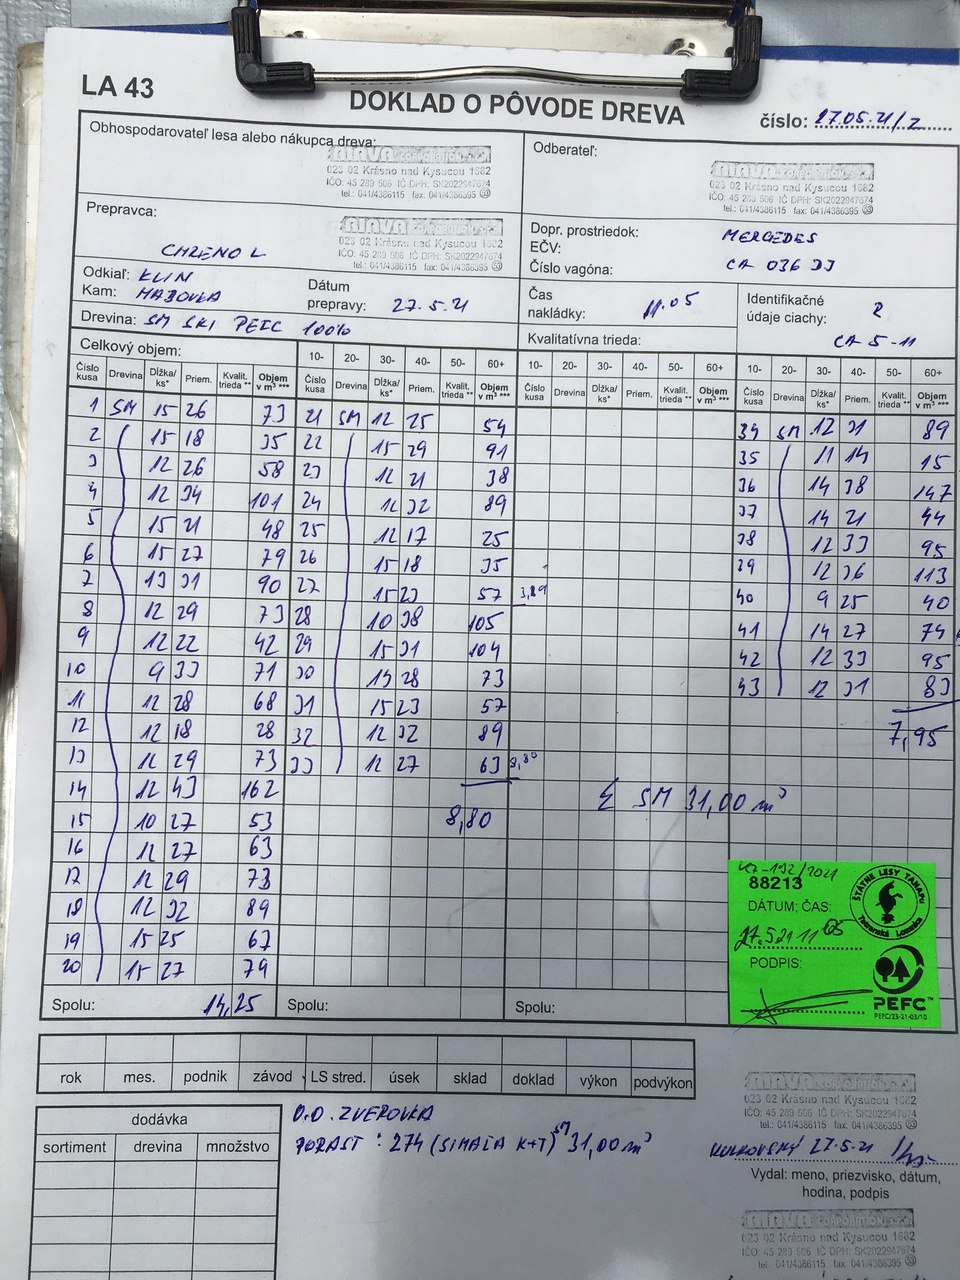 LA 43
DOKLAD O PÔVODE DREVA
číslo: 27.05.21/2
Obhospodarovateľ lesa alebo nákupca dreva:
023 02 Krásno nad Kysucou 1682
IČO: 45 289 506 IČ DPH: SK2022947674
tel.: 041/4386115 fax: 041/4386395
Odberateľ:
023 02 Krásno nad Kysucou 1682
IČO: 45 289 506 IČ DPH: SK2022947674
tel.: 041/4386115 fax: 041/4386395
Prepravca:
CHRENO L
023 02 Krásno nad Kysucou 1682
IČO: 45 289 506 IČ DPH: SK2022947674
tel.: 041/4386115 fax: 041/4386395
Dopr. prostriedok: MERCEDES
EČV:
Číslo vagóna: CA 036 DJ
Odkiaľ: KLIN
Kam: HABOVKA
Dátum
prepravy: 27.5.21
Čas
nakládky: 11.05
Identifikačné
údaje ciachy: 2
CA 5-11
Drevina: SM SKI PEFC 100%
Kvalitatívna trieda:
Celkový objem: 10- 20- 30- 40- 50- 60+ 10- 20- 30- 40- 50- 60+ 10- 20- 30- 40- 50- 60+
Číslo kusa Drevina Dĺžka/ ks* Priem. Kvalit. trieda ** Objem v m³ *** Číslo kusa Drevina Dĺžka/ ks* Priem. Kvalit. trieda ** Objem v m³ *** Číslo kusa Drevina Dĺžka/ ks* Priem. Kvalit. trieda ** Objem v m³ *** Číslo kusa Drevina Dĺžka/ ks* Priem. Kvalit. trieda ** Objem v m³ ***
1 SM 15 26 73 21 SM 12 25 54 34 SM 12 31 89
2 15 18 35 22 15 29 91 35 11 14 15
3 12 26 58 23 12 21 38 36 14 38 147
4 12 34 101 24 12 32 89 37 14 21 44
5 15 21 48 25 12 17 25 38 12 33 95
6 15 27 79 26 15 18 35 39 12 36 113
7 13 31 90 27 15 23 57 3,89 40 9 25 40
8 12 29 73 28 10 38 105 41 14 27 74
9 12 22 42 29 15 31 104 42 12 33 95
10 9 33 71 30 13 28 73 43 12 31 83
11 12 28 68 31 15 23 57
12 12 18 28 32 12 32 89 7,95
13 12 29 73 33 12 27 63
14 12 43 162 Σ SM 31,00 m³
15 10 27 53 8,80
16 12 27 63
17 12 29 73
18 12 32 89
19 15 25 67
20 15 27 79
Spolu: 14,25 Spolu: Spolu:
88213
DÁTUM; ČAS:
27.5.21 11 05
PODPIS:
ŠTÁTNE LESY TANAPU
Tatranská Lomnica
PEFC™
PEFC/23-21-03/10
rok mes. podnik závod LS stred. úsek sklad doklad výkon podvýkon
dodávka
sortiment drevina množstvo
O.O. ZVEROVKA
PORAST: 274 (SIHALA K+T) SM 31,00 m³
023 02 Krásno nad Kysucou 1682
IČO: 45 289 506 IČ DPH: SK2022947674
tel.: 041/4386115 fax: 041/4386395
27-5-21
Vydal: meno, priezvisko, dátum,
hodina, podpis
023 02 Krásno nad Kysucou 1682
IČO: 45 289 506 IČ DPH: SK2022947674
tel.: 041/4386115 fax: 041/4386395